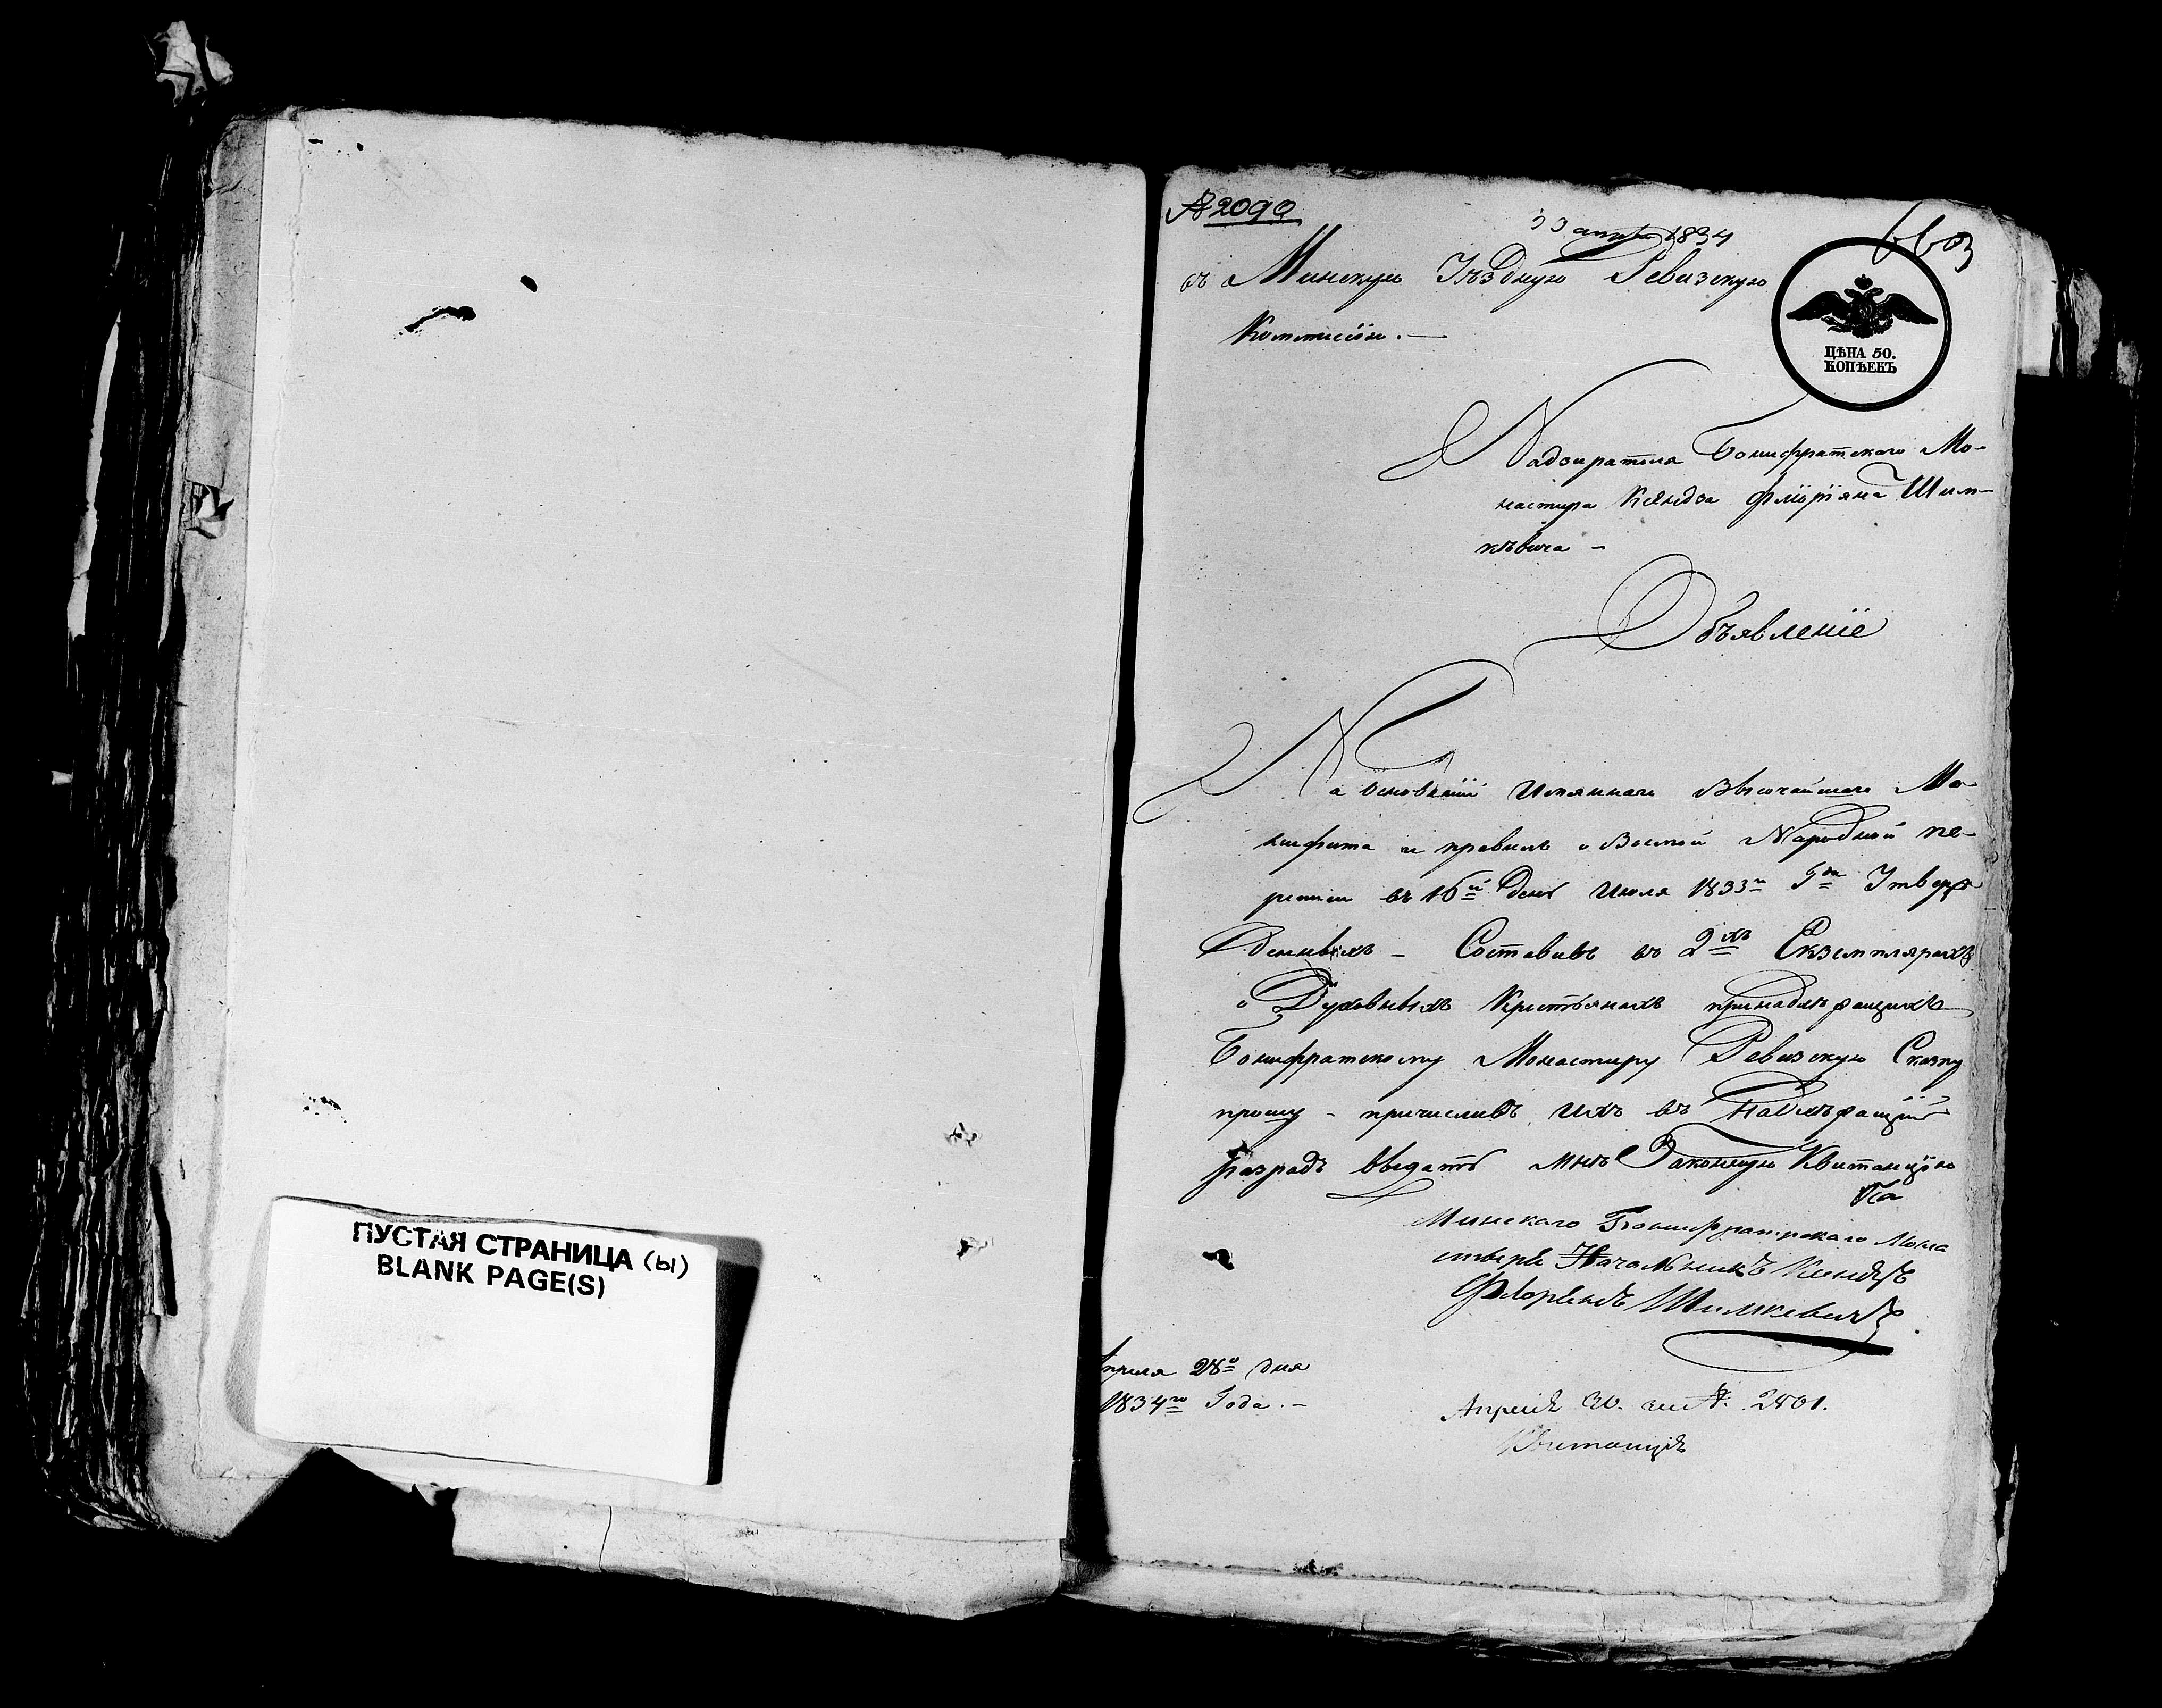 ПУСТАЯ СТРАНИЦА (Ы)
BLANK PAGE(S)
№ 2090
30 апреля 1834
въ Минскую Уѣздную Ревизскую
Коммисїи. —
ЦѢНА 50.
КОПѢЕКЪ
Надзирателя Бонифратского Мо-
настира Ксіондза Флоріяна Шим-
кѣвича —
Объявленїе
На основанїи Имяннаго Высочайшаго Ма-
нифста и правилъ о Восмой Народной пе-
реписи въ 16й день Июля 1833го Года Утверж
денныхъ — Составивъ въ 2хъ Екземплярахъ
о Духовныхъ Кристьянахъ принадлѣжащихъ
Бонифратскому Монастиру Ревизскую Сказку
прошу — причисливъ ихъ въ Надлѣжащїй
разрадъ выдать мнѣ Законную Квитанцїю
Минскаго Бонифратрскаго Мона
стыря Начальникъ Ксиндзъ
Флорїянъ Шимкевичъ
Апреля 28о дня
1834го Года. —
Апреля 30. № 2801.
Квитанція